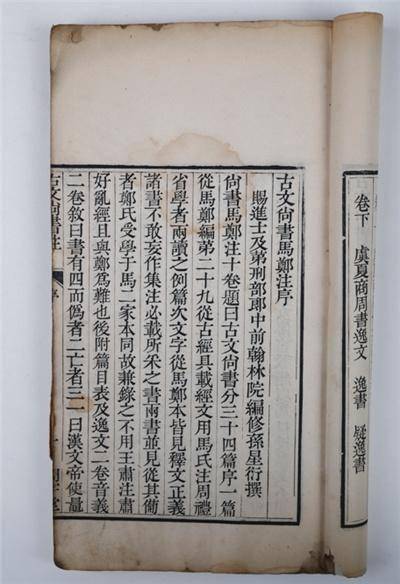 卷下　虞夏商周書逸文　逸書　疑逸書
古文尙書馬鄭注序
賜進士及第刑部郎中前翰林院編修孫星衍撰
尙書馬鄭注十卷題曰古文尙書分三十四篇序一篇
從馬鄭編第二十九從古經具載經文用馬氏注周禮
省學者兩讀之例篇次文字從馬鄭本皆見釋文正義
諸書不敢妄作集注必載所釆之書兩書並見從其備
者鄭氏受學于馬二家本同故兼錄之不用王肅注肅
好亂經且與鄭爲難也後附篇目表及逸文二卷音義
二卷敘曰書有四而僞者二亡者三一曰漢文帝使鼂
古文尙書注
序